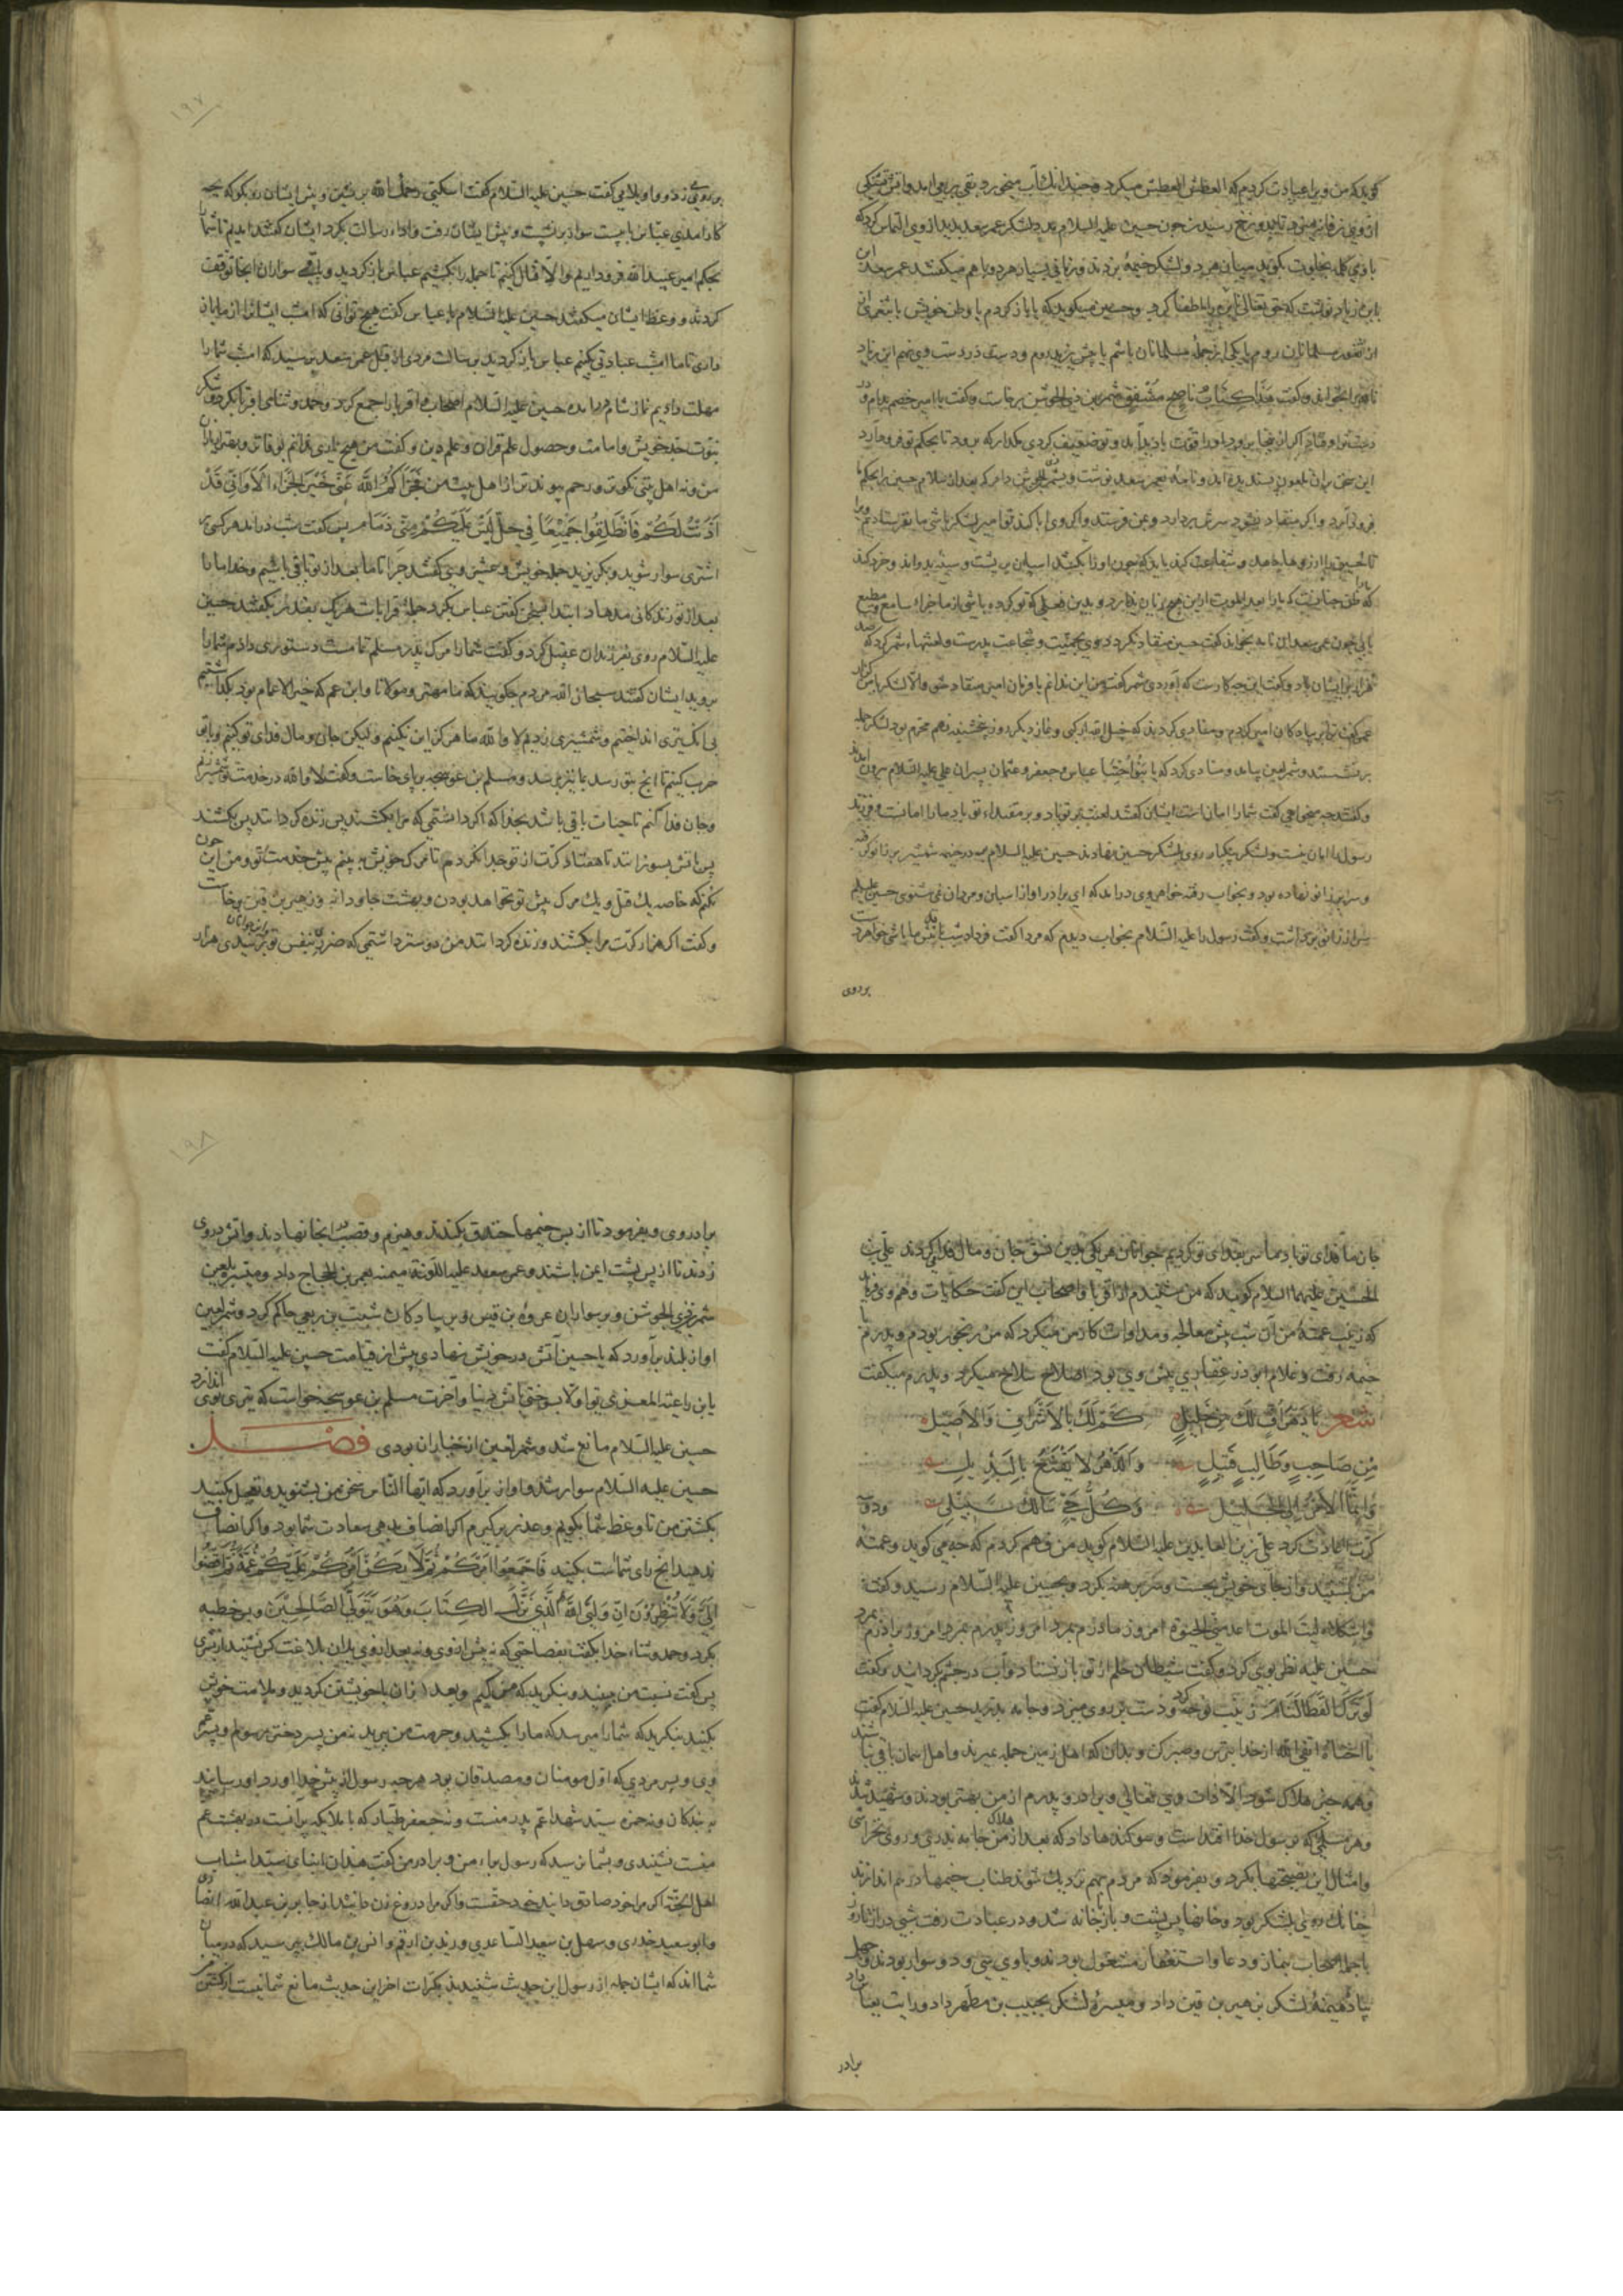 گوید که من ویرا عیادت کردم که العطش العطش میکرد و چندانک آب میخورد بقی میبرمی‌آمد و آتش تشنگی
از وی زفانه میزد تا بدوزخ رسید چون حسین علیه السلام بدید لشکر عمر سعد بدید از وی التماس کرد که
با وی کلمه بخلوت بگوید میان هر دو لشکر خیمه بزدند و زمانی بسیار هر دو با هم میگفتند عمر سعد
بابن زیاد نوشت که حق تعالی این را اطفا کرد و حسین میگوید که یا باز گردم با وطن خویش یا بثغری
از ثغور مسلمانان روم یا یکی از جمله مسلمانان باشم یا پیش یزید روم و دست در دست وی نهم ابن زیاد
نامه بر خواند و گفت هذا کتاب ناصح مشفق شمر بن ذی الجوشن برخاست و گفت یا امیر خصم بدام
این سخن بدان ملعون پسندیده آمد و نامه بعمر سعد نوشت و بشمر ذی الجوشن داد که بعد از سلام حسین را بحکم ما
فرود آرد و اگر منقاد نشود سرش بردارد و بمن فرستد و اگر وی ابا کند تو امیر لشکر باشی ما نفرستادیم ترا
با بی چون عمر سعد آن نامه بخواند گفت حسین منقاد نگردد وی بحمیت و شجاعت پدرست و لعنتها بشمر کرد که
بر نشستند و شمر لعین بیامد و منادی کرد که یا بنوا اختنا عباس و جعفر و عثمان پسران علی علیه السلام بیرون آمدند
و گفتند چه میخواهی گفت شما را امانست ایشان گفتند لعنت بر تو باد و بر مقتداء تو باد ما را امانست و فرزند
رسول را امان نیست و لشکر بیکبار روی بلشکر حسین نهادند حسین علیه السلام بر در خیمه شمشیر بر زانو
و سر بر زانو نهاده بود و بخواب رفته خواهر وی درآمد که ای برادر آواز اسبان و مردان نمی شنوی حسین علیه السلام
سر از زانو برداشت و گفت رسول را علیه السلام بخواب دیدم که مرا گفت فردا شب باش ما باشی خواهرش
بر روی
۱۹۷
بر روی زد و واویلا می گفت حسین علیه السلام گفت اسکتی رحمک الله بر نشین و پیش ایشان رو بگو که بچه
کار آمدی عباس با بیست سوار بر نشست و پیش ایشان رفت و اداء رسالت بکرد ایشان گفتند آمدیم تا شما را
بحکم امیر عبید الله فرود آریم و الا قتال کنیم تا جمله را بکشیم عباس باز گردید و باقی سواران آنجا توقف
کردند و وعظ ایشان میگفتند حسین علیه السلام با عباس گفت هیچ توانی که امشب ایشانرا از ما باز
داری تا ما امشب عبادتی بکنیم عباس باز گردید برسالت مردی از قبل عمر سعد برسید که امشب شما را
مهلت دادیم نماز شام حسین علیه السلام اصحاب و اقربا را جمع کرد و حمد و ثنای بکرد و شکر
نبوت جد خویش و امامت و حصول علم قرآن و علم دین و گفت من هیچ یاری ندانم بوفاتر و بقرابتر از
من و نه اهل بیتی نکوتر و رحم پیوندتر از اهل بیت من فجزاکم الله عنی خیر الجزاء الا وانی قد
اذنت لکم فانطلقوا جمیعا فی حل لیس علیکم منی ذمام پس گفت شب درآمد هر کسی
اشتری سوار شوید و بگریزید جمله خویش و عشیرت وی گفتند چرا تا ما بعد از تو باقی باشیم و خدا ما را
بعد از تو زندگانی مدهاد ابتدا بسخن گفتن عباس بکرد جمله قرابات هر یک بقدر بگفتند حسین
علیه السلام روی بفرزندان عقیل کرد و گفت شما را مرگ پدر مسلم تمامست دستوری دادم شما را
بروید ایشان گفتند سبحان الله مردم چگویند که ما مهتر و مولانا و ابن عم که خیر الاعمام بود بگذاشتیم
بی انک تیری انداختیم و شمشیری زدیم لا والله ما هرگز این نکنیم ولیکن جان و مال فدای تو کنیم و با تو
حرب کنیم تا آنچ بتو رسد بما نیز برسد و مسلم بن عوسجه بر پای خاست و گفت لا والله در خدمت تو شمشیر زنم
و جان فدا کنم تا حیات باقی باشد بخدا که اگر دانستمی که مرا بکشند پس زنده گردانند پس بکشند
پس بآتش بسوزانند تا هفتاد کرت از تو جدا نگردم تا مرگ خویش به بینم پیش خدمت تو و من این چون
نکنم که خاصه یک قتل و یک مرگ پیش تو نخواهد بودن و بهشت جاودانه و زهیر بن قین برخاست
و گفت اگر هزار کرت مرا بکشند و زنده گردانند من دوستر داشتمی که ضرری بنفس تو نرسیدی هزار
جان ما فدای تو باد ما سر بفدای تو کردیم جوانان هر یکی بدین نسق جان و مال فدا میکردند علی بن
الحسین علیهما السلام گوید که من میشنیدم از اقربا و اصحاب این گفت حکایات و هم وی فرماید
که زینب عمه من آن شب پیش معالجه و مداوات کار من میکرد که من رنجور بودم و پدرم با
خیمه رفت و غلام ابوذر غفاری پیش وی بود اصلاح سلاح همیکرد و پدرم میگفت
شعر یا دهر اف لک من خلیل کم لک بالاشراق والاصیل
من صاحب وطالب قتیل والدهر لا یقنع بالبدیل
وانما الامر الی الجلیل وکل حی سالک سبیلی ودو
کرت اعادت کرد علی زین العابدین علیه السلام گوید من فهم کردم که چه می گوید و عمه
من بشنید و از جای خویش بجست و سر برهنه بکرد و بحسین علیه السلام رسید و گفت
واثکلاه لیت الموت اعدمنی الحیوة امروز مادرم بمرد امروز پدرم بمرد امروز برادرم بمرد
حسین علیه نظر بوی کرد و گفت شیطان حلم از تو باز نستاند و آب در چشم گردانید و گفت
لو ترک القطا لنام زینب نوحه کرد و دست بر روی میزد و جامه بدرید حسین علیه السلام گفت
یا اختاه اتقی الله از خدا بترس و صبر کن و بدان که اهل زمین جمله بمیرند و اهل آسمان باقی نباشند
و همه چیز هلاک شود الا ذات وی تعالی و برادر و پدرم از من بهتر بودند و شهید شدند
و هر مسلمی که برسول خدا اقتداست و سوگندها داد که بعد از هلاک من جامه ندری و روی نخراشی
و امثال این نصیحتها بکرد و بفرمود که مردم بهم نزدیک شوند طناب خیمها در هم اندازند
چنانک روی بلشکر بود و خانها پس پشت و باز بخانه شد و در عبادت رفت شبی دراز تا روز
با جمله اصحاب بنماز و دعا و استغفار مشغول بودند و با وی سی و دو سوار بودند و چهل
پیاده میمنه لشکر بزهیر بن قین داد و میسره لشکر بحبیب بن مظهر داد و رایت بعباس داد
برادر
۱۹۸
برادر وی و بفرمود تا از پس خیمها خندق بکندند و هیزم و قصب در آنجا نهادند و آتش در وی
زدند تا از پس پشت ایمن باشند و عمر سعد علیه اللعنة میمنه بعمر بن الحجاج داد و میسره بلعین
شمر ذی الجوشن و بر سواران عروه بن قیس و بر پیادگان شبث بن ربعی حاکم کرد و شمر لعین
آواز بلند برآورد که یا حسین آتش در خویش نهادی پیش از قیامت حسین علیه السلام گفت
یا ابن راعیة المعزی تو اولا بسوختن بآتش دنیا و آخرت مسلم بن عوسجه خواست که تیری بوی اندازد
حسین علیه السلام مانع شد و شمر لعین از جباران بودی فصل
حسین علیه السلام سوار شد و آواز برآورد که ایها الناس سخن من بشنوید و تعجیل مکنید
بکشتن من تا وعظ شما بگویم و عذر بر گیرم اگر انصاف بدهی سعادت شما بود و اگر انصاف
ندهید آنچ رای شماست بکنید فاجمعوا امرکم ثم لا یکن امرکم علیکم غمة ثم اقضوا
الی ولا تنظرون ان ولیی الله الذی نزل الکتاب وهو یتولی الصالحین و پس خطبه
بکرد و حمد و ثناء خدا بگفت بفصاحتی که نه پیش از وی و نه بعد از وی بدان بلاغت کس نشنید از بشری
پس گفت نسبت من ببینید و بنگرید که من کیم و بعد از آن با خویشتن گردید و ملامت خویش
بکنید بنگرید که شما را میرسد که ما را بکشید و حرمت من ببرید نه من پسر دختر رسولم و پسر عم
وی و پسر مردی که اول مومنان و مصدقان بود هرچه رسول از پیش خدا آورد و رسانید
به بندگان و نه حمزه سید شهدا عم پدر منست و نه جعفر طیار که با ملایکه پرانست در بهشت عم
منست نشنیدی و بشما نرسید که رسول ما را من و برادر من گفت هذان ابنای سیدا شباب
اهل الجنة اگر مرا خود صادق دانید خود حقست و اگر مرا دروغ زن دانید از جابر بن عبد الله انصاری
و ابو سعید خدری و سهل بن سعید الساعدی و زید بن ارقم و انس بن مالک بپرسید که در میان
شما اند که ایشان جمله از رسول این حدیث شنیدند بکرات آخر این حدیث مانع شما نیست از کشتن من